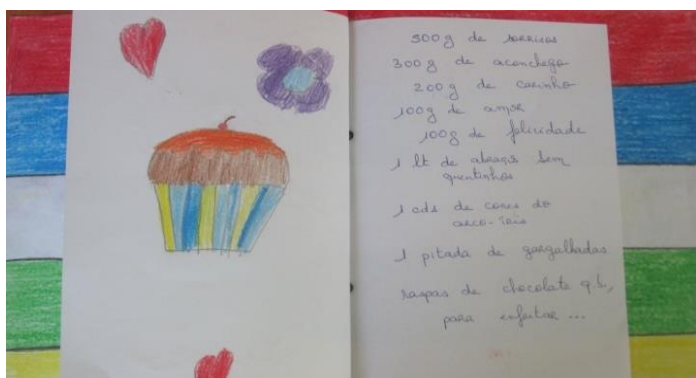 500g de sorrisos
300g de aconchego
200g de carinho
100g de amor
100g de felicidade
1 lt de abraços bem
quentinhos
1 cds de cores do
arco-íris
1 pitada de gargalhadas
raspas de chocolate q.b.,
para enfeitar ...